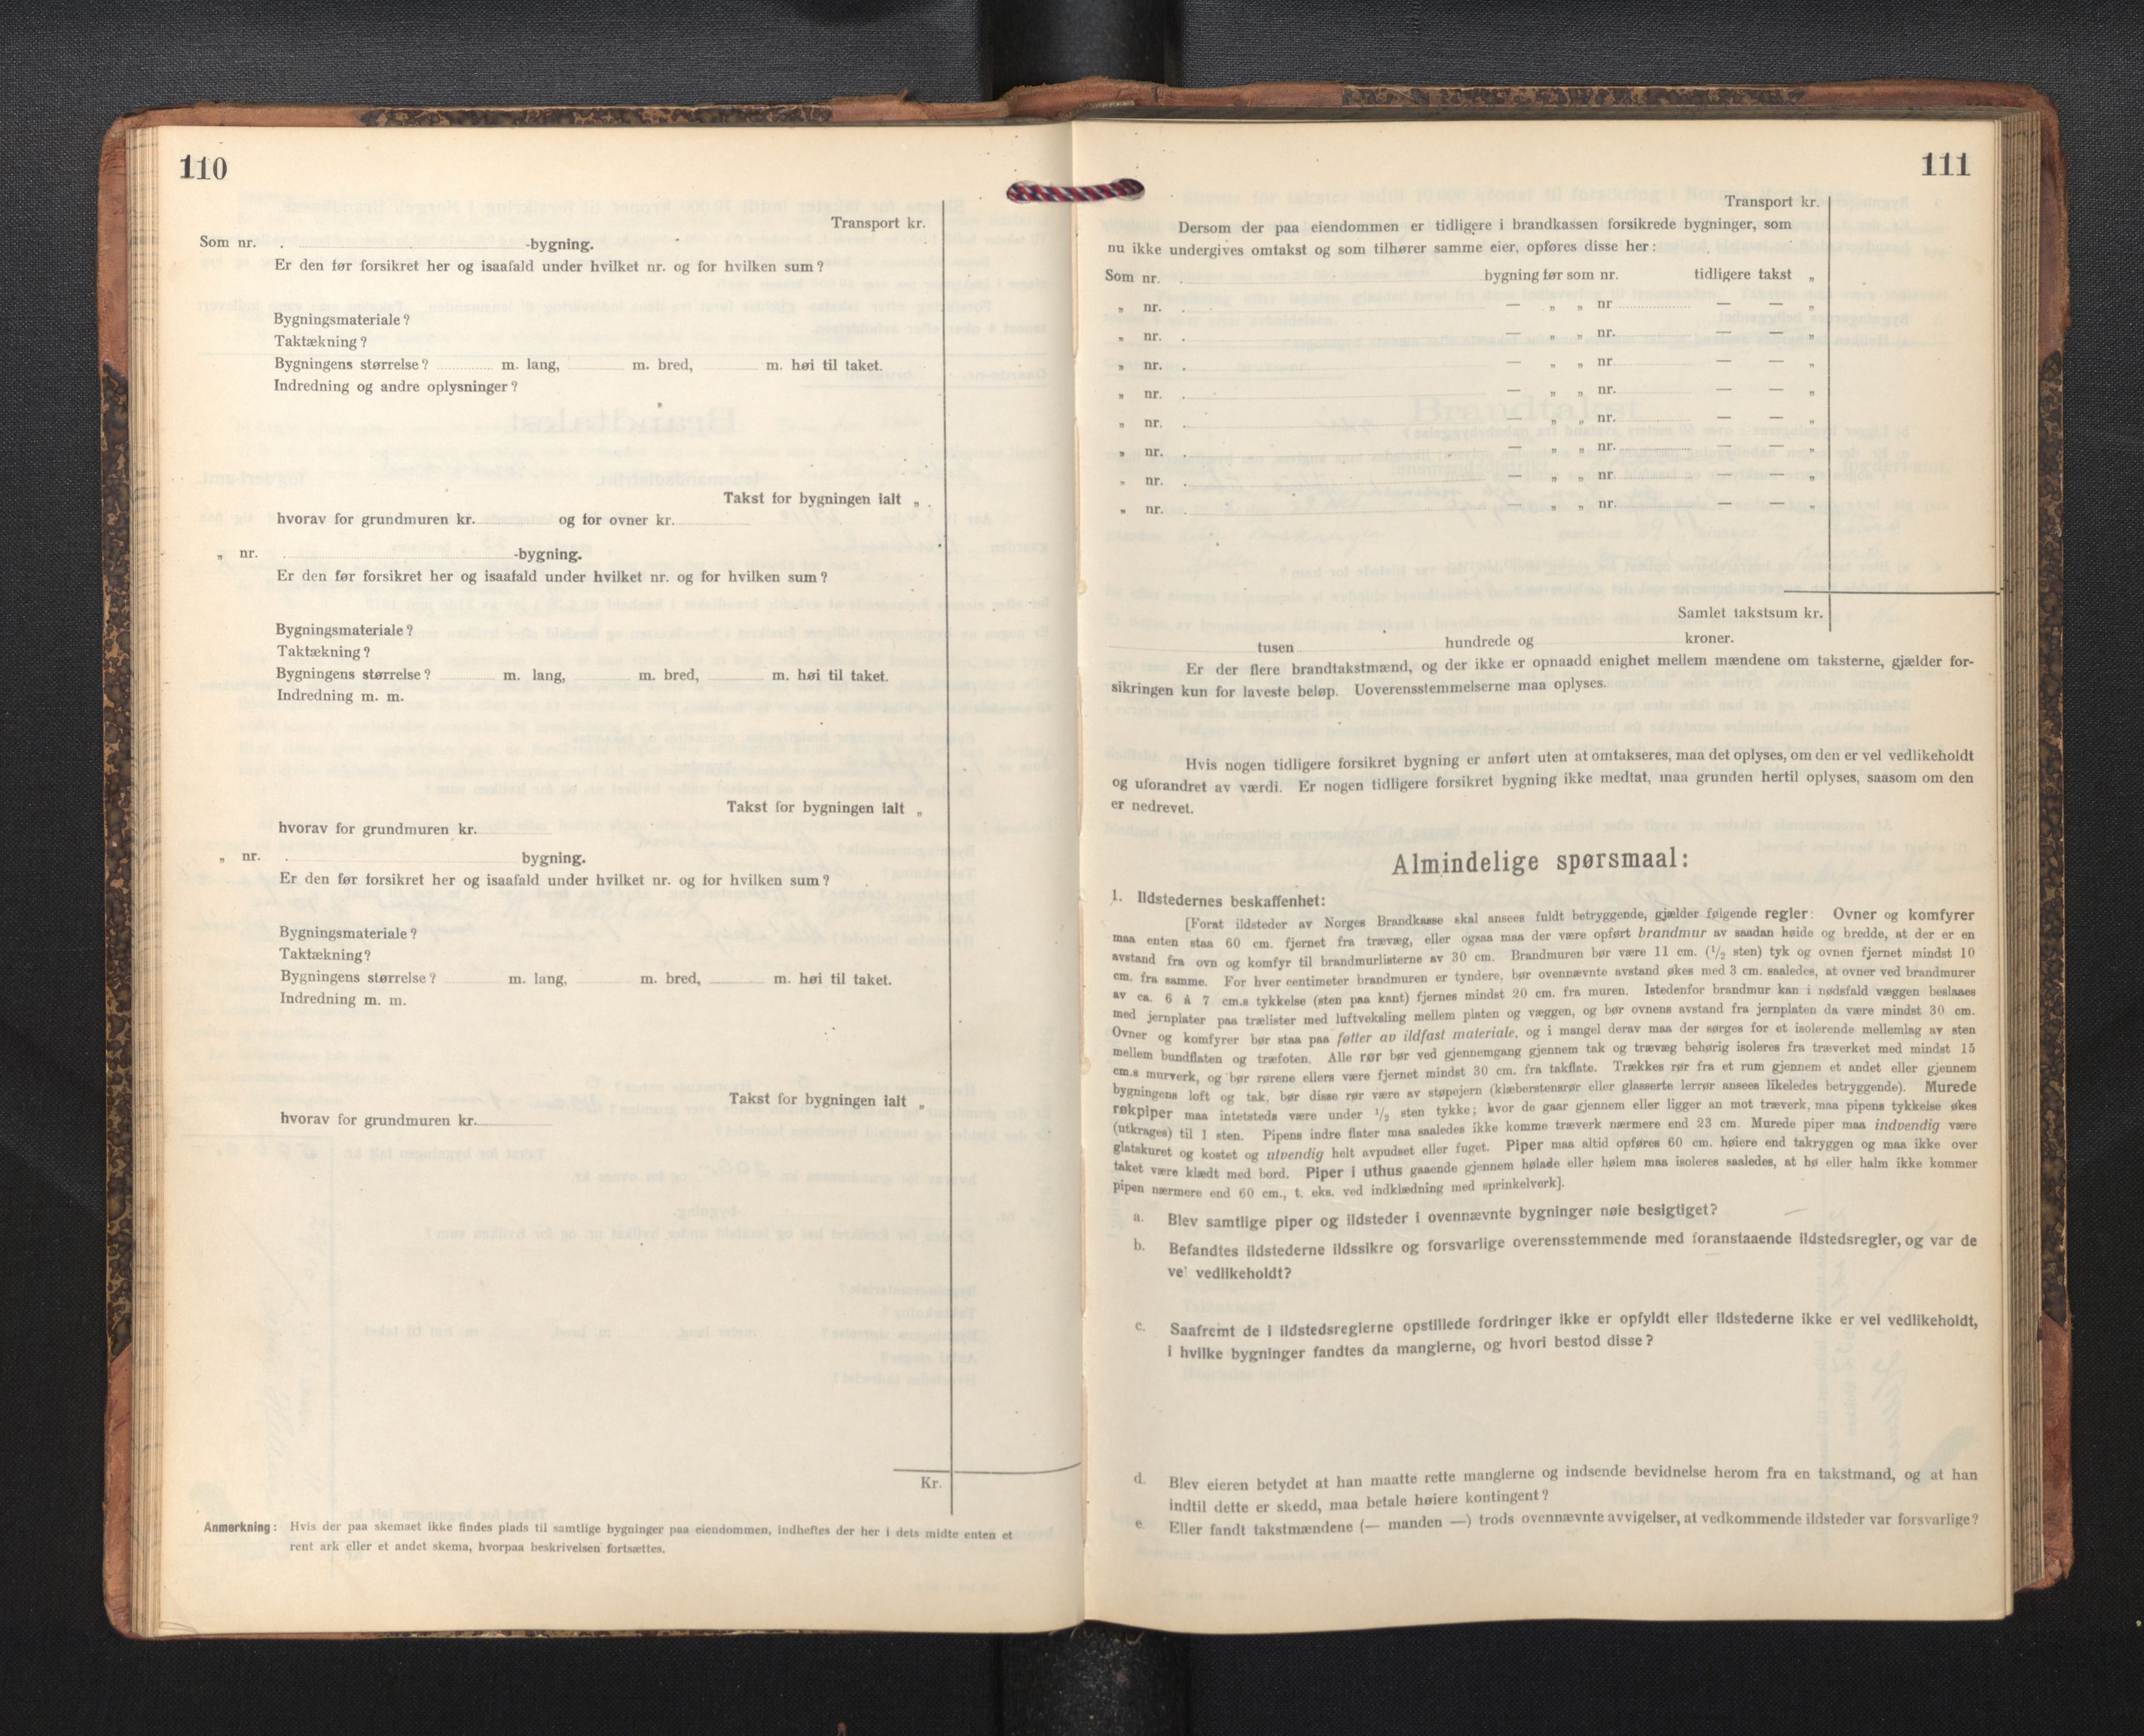 110
Transport kr.
Som nr. . -bygning.
Er den før forsikret her og isaafald under hvilket nr. og for hvilken sum?
Bygningsmateriale?
Taktækning?
Bygningens størrelse? m. lang, m. bred, m. høi til taket.
Indredning og andre oplysninger?
Takst for bygningen ialt „ .
hvorav for grundmuren kr. og for ovner kr.
„ nr. -bygning.
Er den før forsikret her og isaafald under hvilket nr. og for hvilken sum?
Bygningsmateriale?
Taktækning?
Bygningens størrelse? m. lang, m. bred, m. høi til taket.
Indredning m. m.
Takst for bygningen ialt „
hvorav for grundmuren kr.
„ nr. . bygning.
Er den før forsikret her og isaafald under hvilket nr. og for hvilken sum?
Bygningsmateriale?
Taktækning?
Bygningens størrelse? m. lang, m. bred, m. høi til taket.
Indredning m. m.
Takst for bygningen ialt „
hvorav for grundmuren kr.
Kr.
Anmerkning: Hvis der paa skemaet ikke findes plads til samtlige bygninger paa eiendommen, indheftes der her i dets midte enten et
rent ark eller et andet skema, hvorpaa beskrivelsen fortsættes.
111
Transport kr.
Dersom der paa eiendommen er tidligere i brandkassen forsikrede bygninger, som
nu ikke undergives omtakst og som tilhører samme eier, opføres disse her:
Som nr. bygning før som nr. tidligere takst „
„ nr. — „ „ nr — — „
„ nr. — „ „ nr. — — „
„ nr. — „ „ nr — — „
„ nr. — „ „ nr. — — „
„ nr. — „ „ nr. — — „
„ nr. — „ „ nr. — — „
„ nr. — „ „ nr. — — „
„ nr. — „ „ nr. — — „
Samlet takstsum kr.
tusen hundrede og kroner.
Er der flere brandtakstmænd, og der ikke er opnaadd enighet mellem mændene om taksterne, gjælder for-
sikringen kun for laveste beløp. Uoverensstemmelserne maa oplyses.
Hvis nogen tidligere forsikret bygning er anført uten at omtakseres, maa det oplyses, om den er vel vedlikeholdt
og uforandret av værdi. Er nogen tidligere forsikret bygning ikke medtat, maa grunden hertil oplyses, saasom om den
er nedrevet.
Almindelige spørsmaal:
1. Ildstedernes beskaffenhet:
[Forat ildsteder av Norges Brandkasse skal ansees fuldt betryggende, gjælder følgende regler: Ovner og komfyrer
maa enten staa 60 cm. fjernet fra trævæg, eller ogsaa maa der være opført brandmur av saadan høide og bredde, at der er en
avstand fra ovn og komfyr til brandmurlisterne av 30 cm. Brandmuren bør være 11 cm. (1/2 sten) tyk og ovnen fjernet mindst 10
cm. fra samme. For hver centimeter brandmuren er tyndere, bør ovennævnte avstand økes med 3 cm. saaledes, at ovner ved brandmurer
av ca. 6 à 7 cm.s tykkelse (sten paa kant) fjernes mindst 20 cm. fra muren. Istedenfor brandmur kan i nødsfald væggen beslaaes
med jernplater paa trælister med luftveksling mellem platen og væggen, og bør ovnens avstand fra jernplaten da være mindst 30 cm.
Ovner og komfyrer bør staa paa føtter av ildfast materiale, og i mangel derav maa der sørges for et isolerende mellemlag av sten
mellem bundflaten og træfoten. Alle rør bør ved gjennemgang gjennem tak og trævæg behørig isoleres fra træverket med mindst 15
cm.s murverk, og bør rørene ellers være fjernet mindst 30 cm. fra takflate. Trækkes rør fra et rum gjennem et andet eller gjennem
bygningens loft og tak, bør disse rør være av støpejern (klæberstensrør eller glasserte lerrør ansees likeledes betryggende). Murede
røkpiper maa intetsteds være under 1/2 sten tykke; hvor de gaar gjennem eller ligger an mot træverk, maa pipens tykkelse økes
(utkrages) til 1 sten. Pipens indre flater maa saaledes ikke komme træverk nærmere end 23 cm. Murede piper maa indvendig være
glatskuret og kostet og utvendig helt avpudset eller fuget. Piper maa altid opføres 60 cm. høiere end takryggen og maa ikke over
taket være klædt med bord. Piper i uthus gaaende gjennem hølade eller hølem maa isoleres saaledes, at hø eller halm ikke kommer
pipen nærmere end 60 cm., t. eks. ved indklædning med sprinkelverk].
a. Blev samtlige piper og ildsteder i ovennævnte bygninger nøie besigtiget?
b. Befandtes ildstederne ildssikre og forsvarlige overensstemmende med foranstaaende ildstedsregler, og var de
vel vedlikeholdt?
c. Saafremt de i ildstedsreglerne opstillede fordringer ikke er opfyldt eller ildstederne ikke er vel vedlikeholdt,
i hvilke bygninger fandtes da manglerne, og hvori bestod disse?
d. Blev eieren betydet at han maatte rette manglerne og indsende bevidnelse herom fra en takstmand, og at han
indtil dette er skedd, maa betale høiere kontingent?
e Eller fandt takstmændene (— manden —) trods ovennævnte avvigelser, at vedkommende ildsteder var forsvarlige?